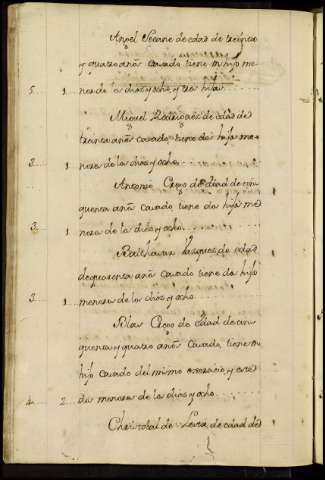 Angel Seoane de edad de treinta
y quatro años casado tiene un hijo me
5 1 nor de los diez y ocho, y tres hijas
Miguel Rodriguez de edad de
treinta años casado, tiene de hijos me
3 1 nores de los diez y ocho
Antonio Crespo de edad de cin
quenta años casado tiene de hijos me
3 1 nores de los diez y ocho
Balthasar Vazquez de edad
de quarenta años casado tiene de hijos
3 1 menores de los diez y ocho
Blas Crespo de edad de cin
quenta y quatro años Casado, tiene un
hijo casado del mismo exercicio y este
4 2 de menores de los diez y ocho
Christobal de Leira de edad de